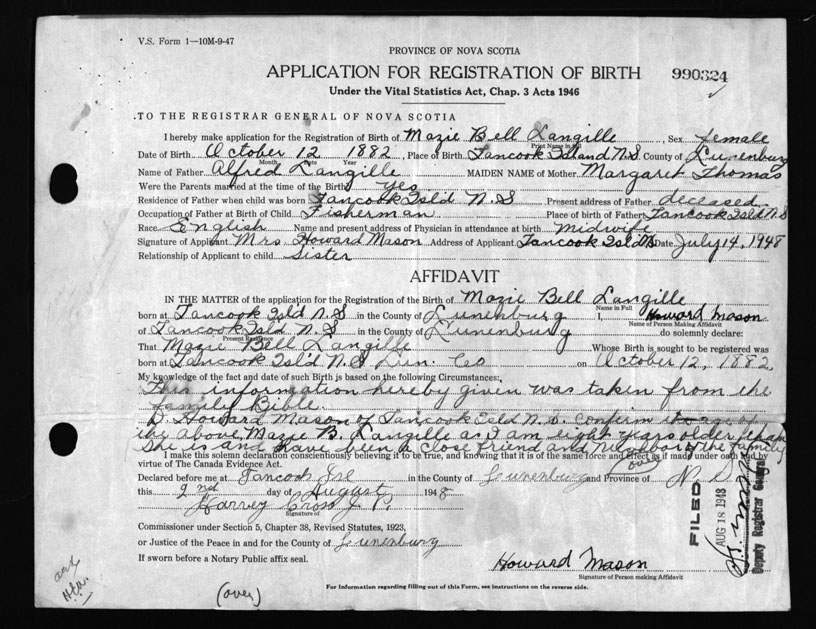 V.S. Form 1—10M-9-47
PROVINCE OF NOVA SCOTIA
APPLICATION FOR REGISTRATION OF BIRTH 990324
Under the Vital Statistics Act, Chap. 3 Acts 1946
TO THE REGISTRAR GENERAL OF NOVA SCOTIA
I hereby make application for the Registration of Birth of Mazie Bell Langille, Sex female
Print Name in Full
Date of Birth October 12 1882, Place of Birth Tancook Island N.S. County of Lunenburg
Month Date Year
Name of Father Alfred Langille MAIDEN NAME of Mother Margaret Thomas
Were the Parents married at the time of the Birth Yes
Residence of Father when child was born Tancook Isld N.S Present address of Father deceased
Occupation of Father at Birth of Child Fisherman Place of birth of Father Tancook Isld N.S
Race English Name and present address of Physician in attendance at birth midwife
Signature of Applicant Mrs Howard Mason Address of Applicant Tancook Isld NS Date July 14, 1948
Relationship of Applicant to child Sister
AFFIDAVIT
IN THE MATTER of the application for the Registration of the Birth of Mazie Bell Langille
Name in Full
born at Tancook Isl'd N.S in the County of Lunenburg I, Howard Mason
Name of Person Making Affidavit
of Tancook Isld N.S in the County of Lunenburg do solemnly declare:
Present Residence
That Mazie Bell Langille Whose Birth is sought to be registered was
born at Tancook Isl'd N.S Lun. Co on October 12, 1882,
My knowledge of the fact and date of such Birth is based on the following Circumstances,
This information hereby given was taken from the
family Bible.
Howard Mason of Tancook Isld N.S. confirm the age of
the above Mazie B. Langille as I am eight years older than
she is and have been a close friend and neighbor of the family
(over)
I make this solemn declaration conscientiously believing it to be true, and knowing that it is of the same force and effect as if made under oath and by
virtue of The Canada Evidence Act.
Declared before me at Tancook Isl in the County of Lunenburg and Province of N.S.
this 2nd day of August 1948
Harvey Cross J. P.
Signature of
Commissioner under Section 5, Chapter 38, Revised Statutes, 1923,
or Justice of the Peace in and for the County of Lunenburg
If sworn before a Notary Public affix seal.
Howard Mason
Signature of Person making Affidavit
FILED
AUG 18 1948
Deputy Registrar General
(over)
For Information regarding filling out of this Form, see instructions on the reverse side.